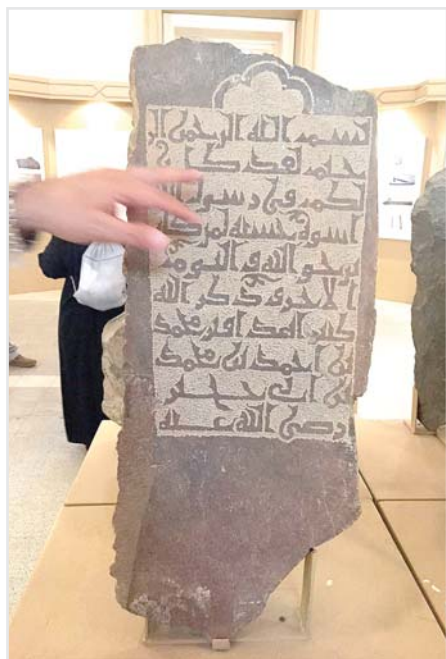 بسم الله الرحمن الر
حيم لقد كان
لكم في رسول الله
اسوة حسنة لمن كان
يرجو الله و اليوم
الاخر و ذكر الله
كثيرا هذا قبر محمد
بن احمد بن محمد
بن ابي
رضي الله عنه